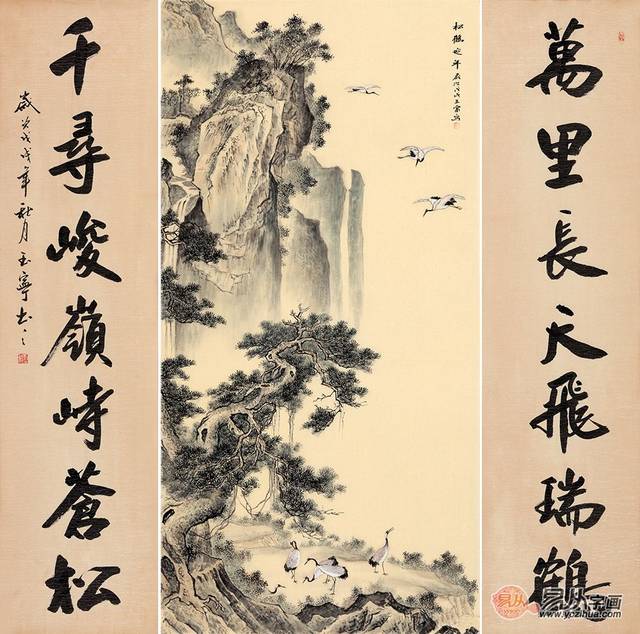 萬里長天飛瑞鶴
松鶴延年
千尋峻嶺峙蒼松
歲次戊戌年秋月玉寧書
易从
易从字画
www.yczihua.com